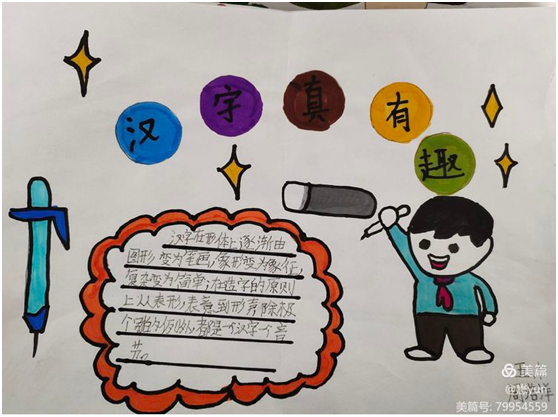 汉字真有趣
汉字在形体上逐渐由
图形变为笔画,象形变为象征,
复杂变为简单;在造字的原则
上从表形、表意到形声。除极
个别的例外,都是一个汉字一个音
节。
美篇
美篇号: 79954559